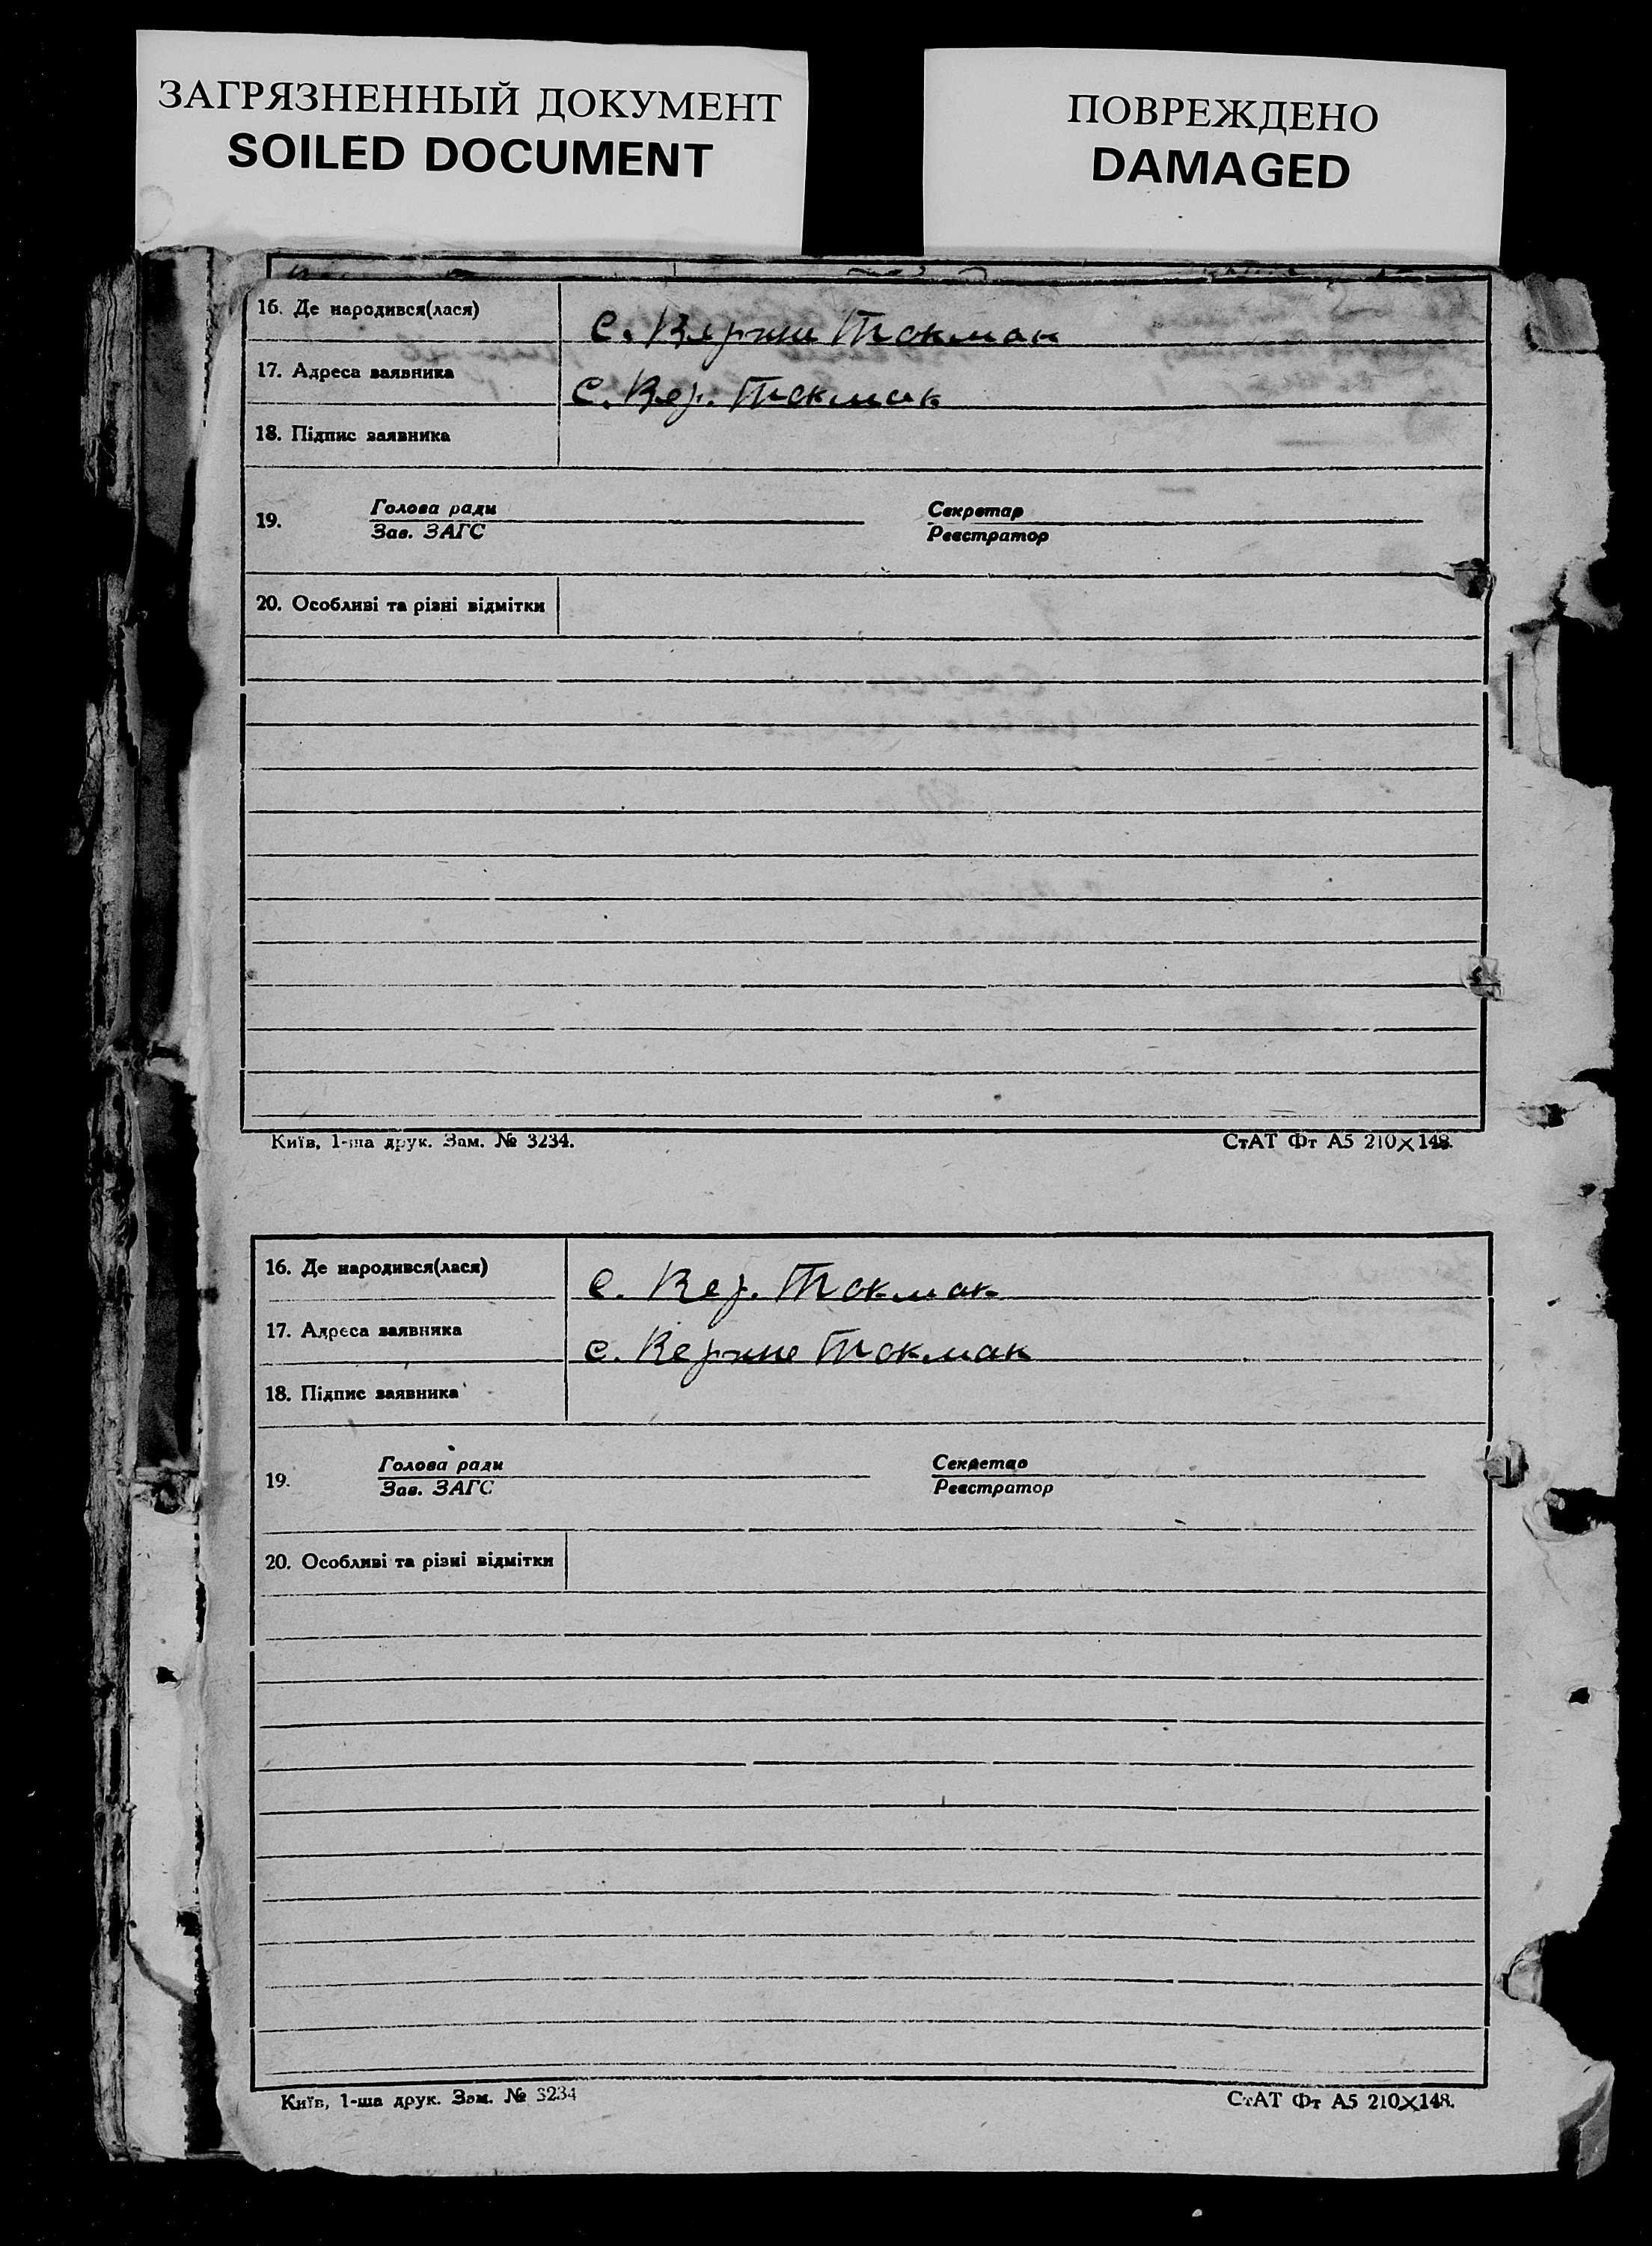 ЗАГРЯЗНЕННЫЙ ДОКУМЕНТ
SOILED DOCUMENT
ПОВРЕЖДЕНО
DAMAGED
16. Де народився(лася) с. Верхнє Токмак
17. Адреса заявника с. Вер. Токмак
18. Підпис заявника
19. Голова ради Секретар
Зав. ЗАГС Реєстратор
20. Особливі та різні відмітки
Київ, 1-ша друк. Зам. № 3234. СтАТ Фт А5 210×148.
16. Де народився(лася) с. Вер. Токмак
17. Адреса заявника с. Верхнє Токмак
18. Підпис заявника
19. Голова ради Секретар
Зав. ЗАГС Реєстратор
20. Особливі та різні відмітки
Київ, 1-ша друк. Зам. № 3234 СтАТ Фт А5 210×148.